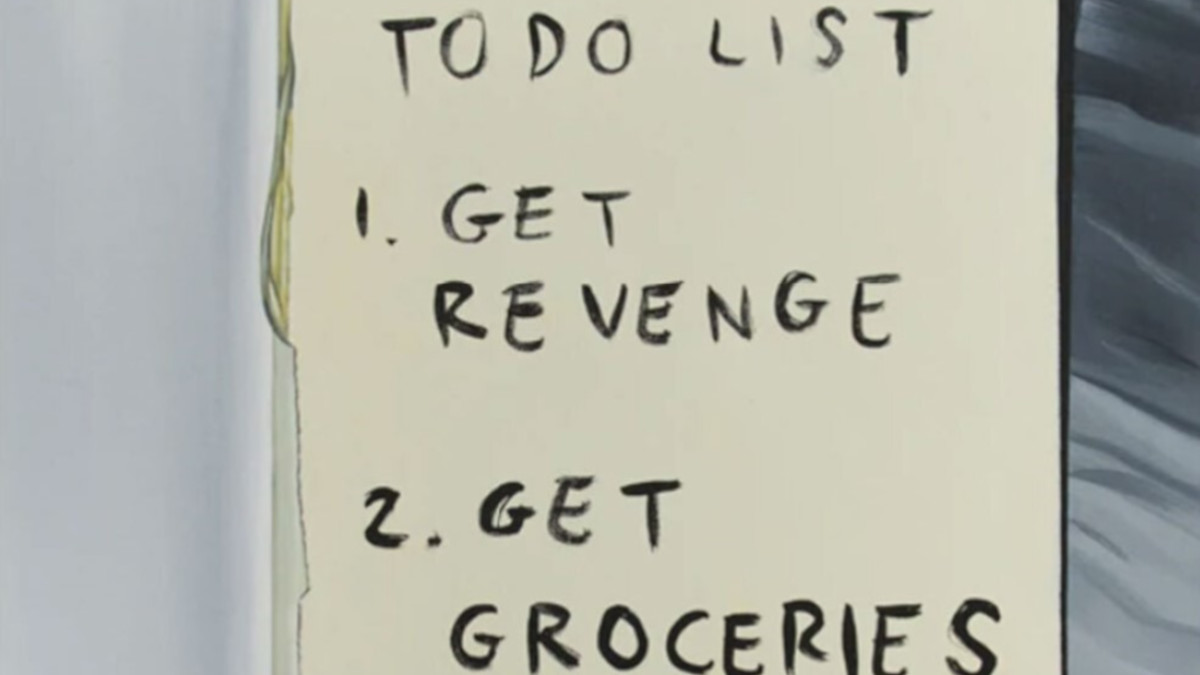 TO DO LIST
1. GET
REVENGE
2. GET
GROCERIES